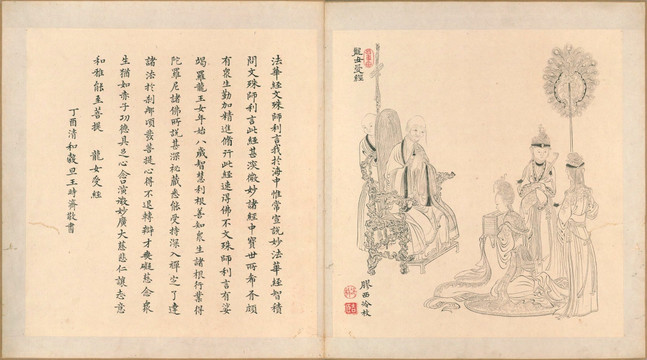 法華經文殊師利言我於海中惟常宣說妙法華經智積
問文殊師利言此經甚深微妙諸經中寶世所希有頗
有衆生勤加精進修行此經速得佛不文殊師利言有娑
竭羅龍王女年始八歲智慧利根善知衆生諸根行業得
陀羅尼諸佛所說甚深祕藏悉能受持深入禪定了達
諸法於刹那頃發菩提心得不退轉辯才無礙慈念衆
生猶如赤子功德具足心念口演微妙廣大慈悲仁讓志意
和雅能至菩提 龍女受經
丁酉清和穀旦王時齊敬書
龍女受經
膠西冷枚